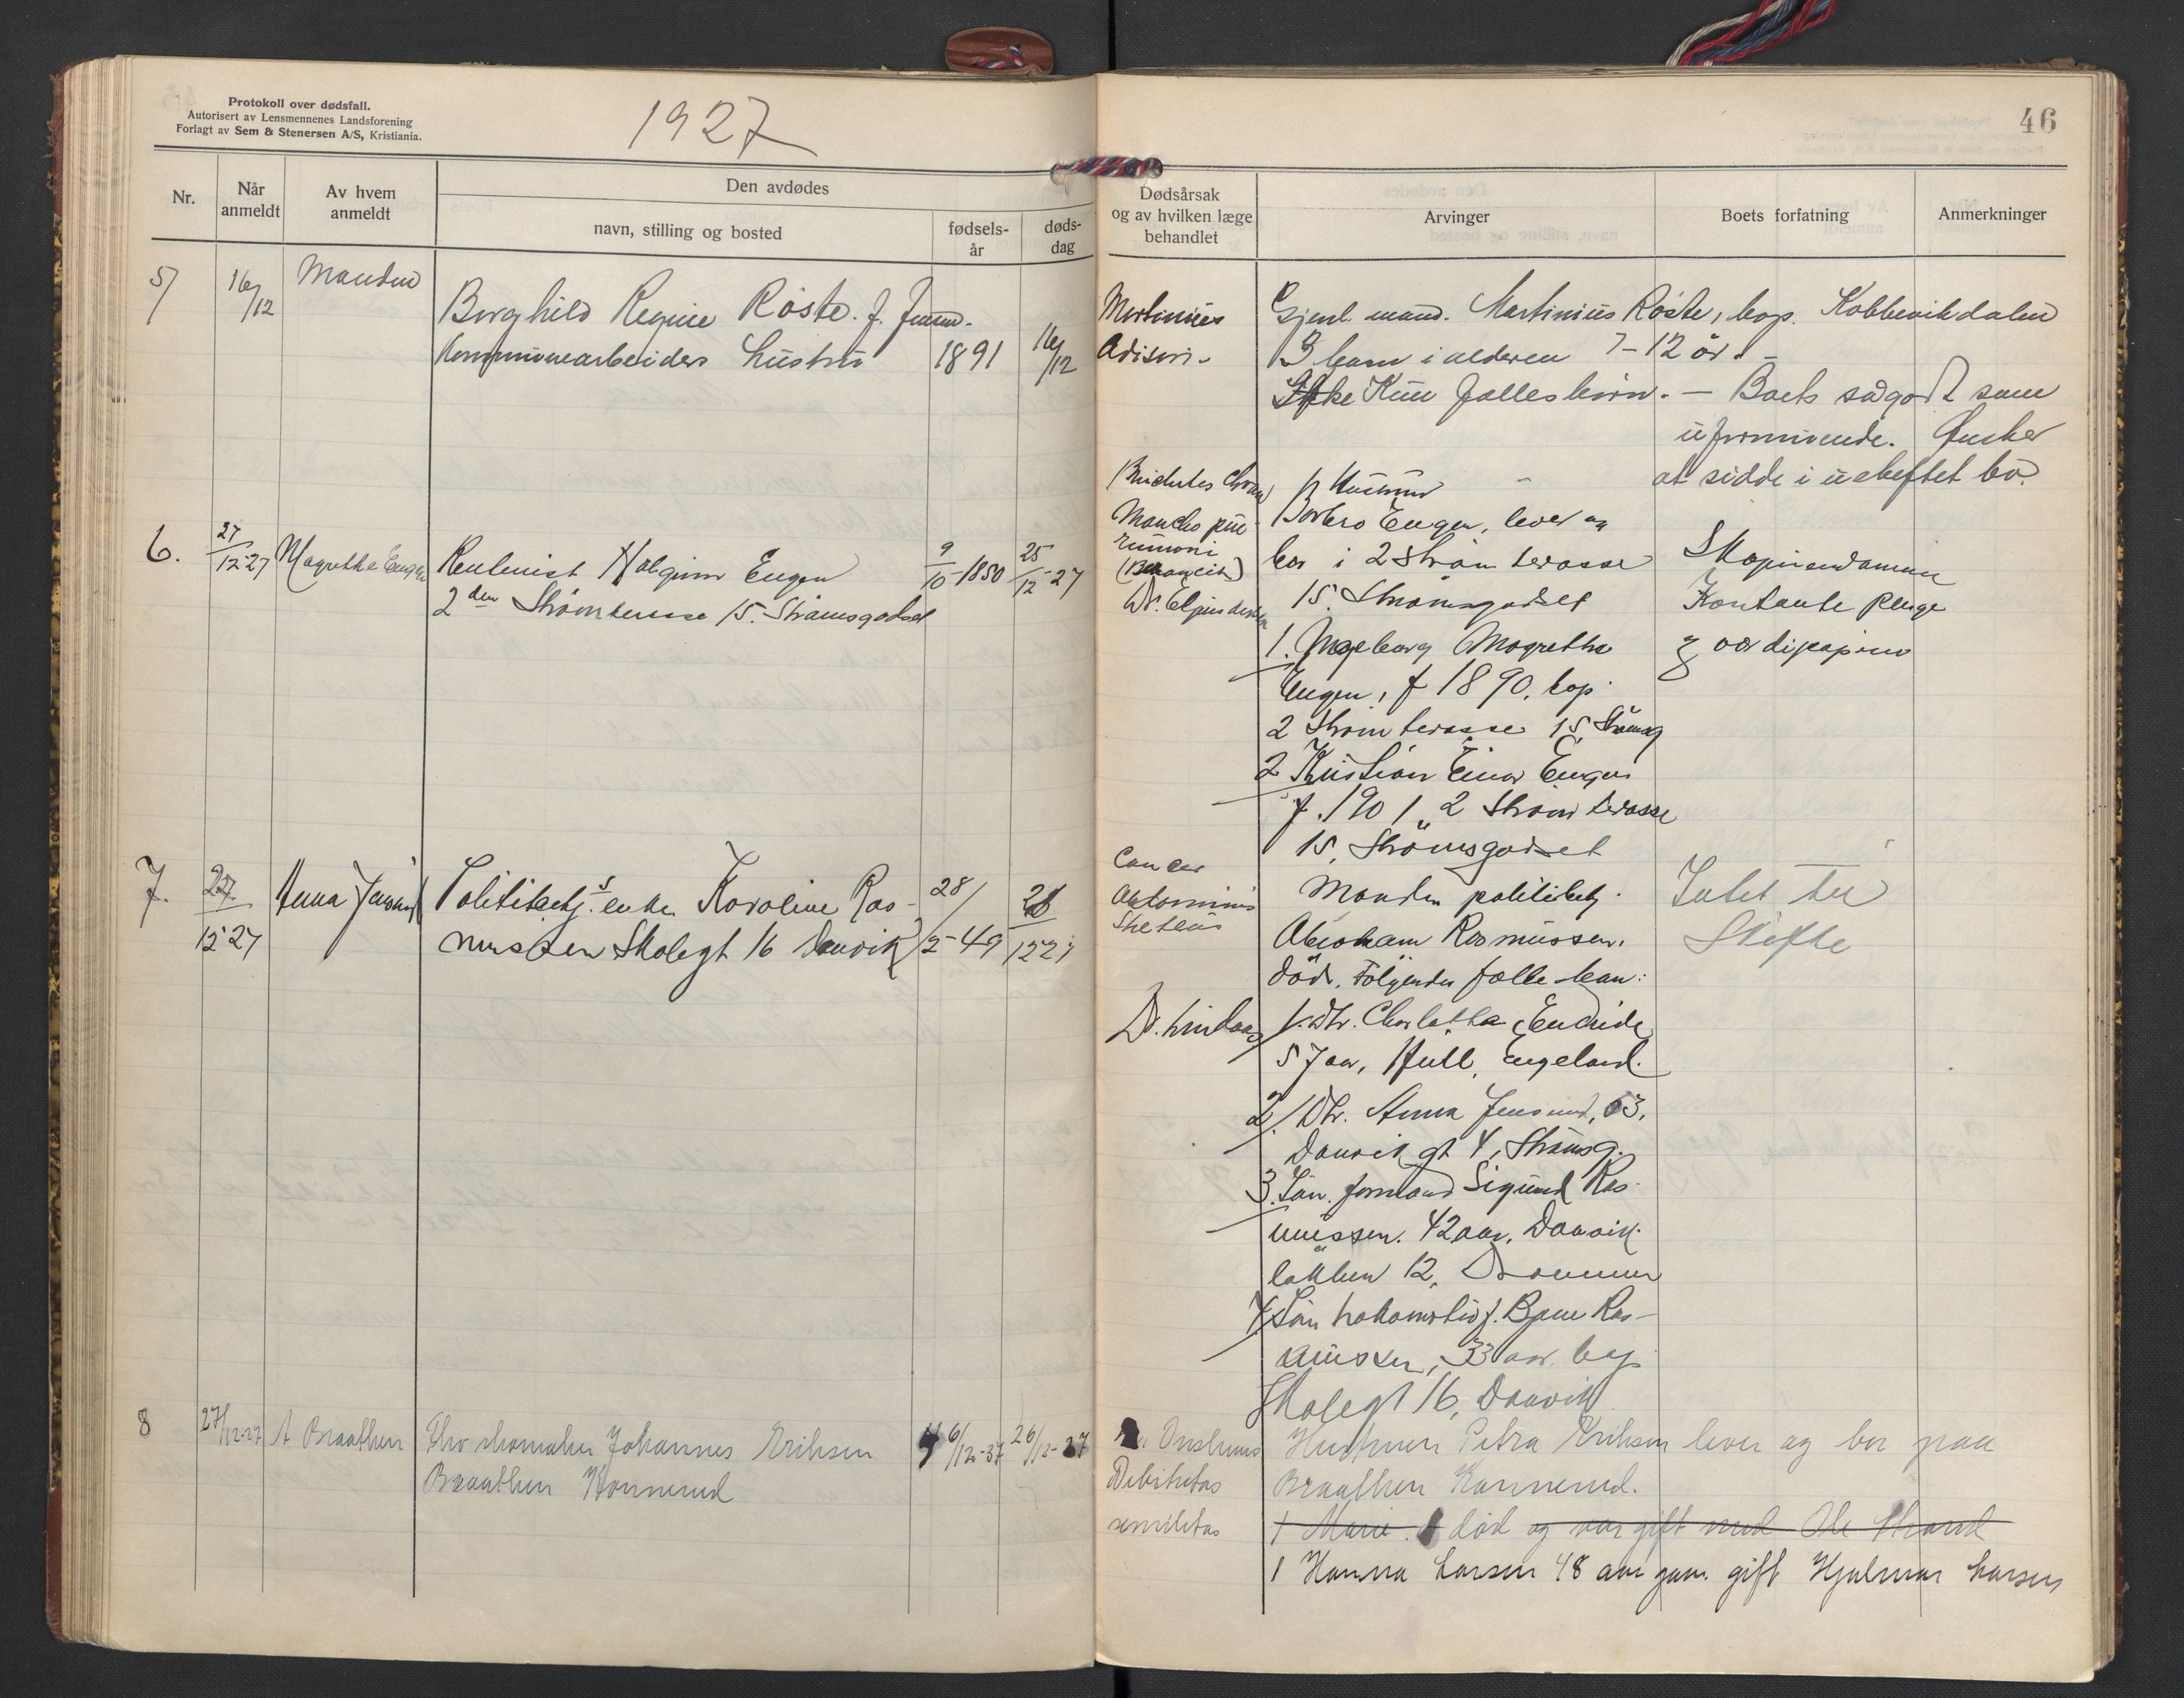 Protokoll over dødsfall.
Autorisert av Lensmennenes Landsforening
Forlagt av Sem & Stenersen A/S, Kristiania.
1927
46
Nr.
Når anmeldt
Av hvem anmeldt
Den avdødes
navn, stilling og bosted
fødsels-år
døds-dag
Dødsårsak
og av hvilken læge
behandlet
Arvinger
Boets forfatning
Anmerkninger
5/
16/12
Manden
Borghild Regine Röste. f.
Kommunearbeiders hustru
1891
16/12
Martinius
Gjenl. mand. Martinius Röste, bop. Kobbervikdalen
3 barn i alderen 7-12 år. -
Kun fellesbörn. - Boets sågodt som
uformuende. Ønsker
at sidde i uskiftet bo.
6.
27/12-27
Magrethe Engen
Rentenist Halgrim Engen
2den Strömterasse 15. Strömsgodset
9/10-1850
25/12-27
Hustruen
Barbro Engen, lever og
bor i 2 Ström terasse
15. Strömsgodset
1. Ingeborg Magrethe
Engen, f 1890. bop.
2 Ström terasse 15, Strömsg
2 Kristian Einar Engen
f. 1901, 2 Ström terasse
15, Strömsgodset
Kontante penge
og værdipapirer
7.
27/12 27
Anna Jensrud
Politibetj.s enke Karoline Ras-
mussen Skolegt 16 Danvik
28/2-49
26/12 27
Cancer
Abdominis
Manden politibetj.
Abraham Rasmussen.
död. Følgende felles barn:
1. Dtr. Charlotte
57 aar, Hull, Engeland.
2/ Dtr. Anna Jensrud, 53,
Danvik gt 4, Strömsg.
3. Sön. formand Sigurd Ras-
mussen. 42 aar, Danvik-
løkken 12, Drammen
4 Sön lokomotivf. Bjarne Ras-
mussen, 33 aar bop.
Skolegt 16, Danvik
Intet til
Skifte
8
27/12-27
A Braathen
Fhv skomaker Johannes Eriksen
Braathen Konnerud
6/12-37
26/12-27
Debilitas
senilitas
Hustruen Petra Eriksen lever og bor paa
Braathen Konnerud.
1 Marie. død og var gift med Ole Strand
1 Hanna Larsen 48 aar gam. gift Hjalmar Larsen